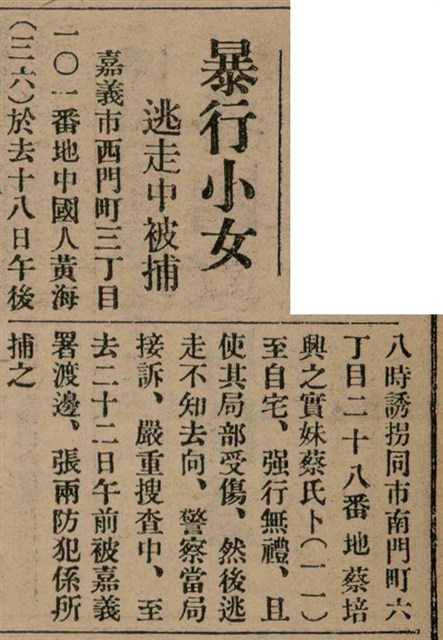 暴行小女
逃走中被捕
嘉義市西門町三丁目
一〇一番地中國人黃海
(三六)於去十八日午後
八時誘拐同市南門町六
丁目二十八番地蔡培
興之實妹蔡氏卜(一一)
至自宅、强行無禮、且
使其局部受傷、然後逃
走不知去向、警察當局
接訴、嚴重搜查中、至
去二十二日午前被嘉義
署渡邊、張兩防犯係所
捕之